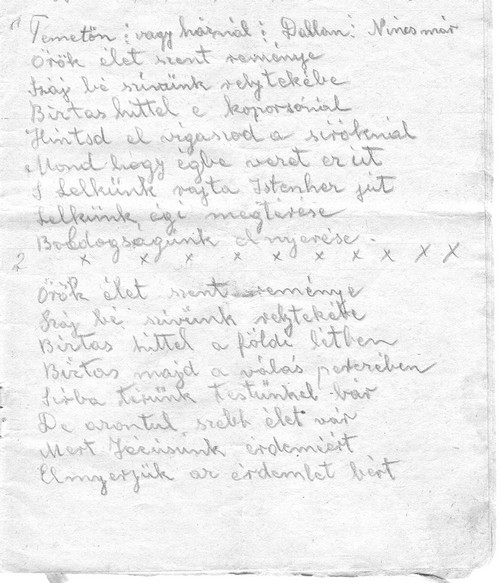 1 Temetőn ; vagy háznál ; Dallam: Nincs már
Örök élet szent reménye
Száj bé szívünk rejtekébe
Biztas hittel e koporsónál
Hintsd el vigaszod a síróknál
Mond hogy égbe vezet ez út
S Lelkünk rajta Istenhez jút
Lelkünk égi megtérése
Boldogságunk elnyerése.
2 x x x x x x x x x x
Örök élet szent reménye
Száj bé szívünk rejtekébe
Biztas hittel a földi létben
Biztas majd a válás perczében
Sírba térünk testünkel bár
De azontul szebb élet vár
Mert Jézusunk érdeméért
Elnyerjük az érdemlet bért